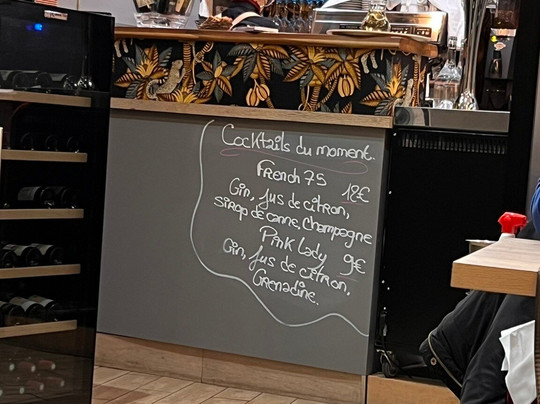 Cocktails du moment.
French 75 12€
Gin, jus de citron,
sirop de canne, Champagne
Pink Lady 9€
Gin, jus de citron,
Grenadine.